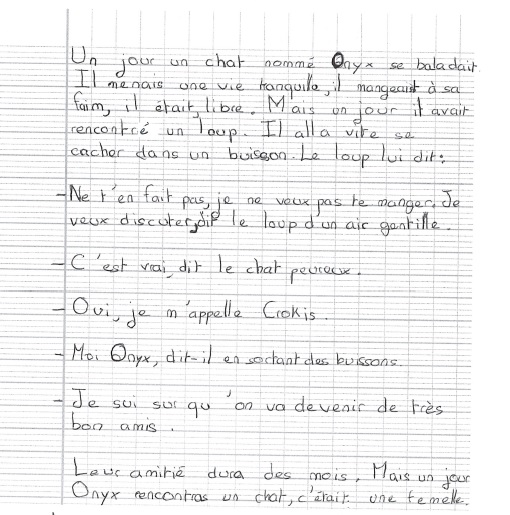 Un jour un chat nommé Onyx se baladait.
Il menais une vie tranquille, il mangeait à sa
faim, il était libre. Mais un jour il avait
rencontré un loup. Il alla vite se
cacher dans un buisson. Le loup lui dit:
-Ne t'en fait pas, je ne veux pas te manger. Je
veux discuter, dit le loup d'un air gentille.
- C'est vrai, dit le chat peureux.
- Oui, je m'appelle Crokis.
- Moi Onyx, dit-il en sortant des buissons.
- Je sui sur qu'on va devenir de très
bon amis.
Leur amitié dura des mois. Mais un jour
Onyx rencontras un chat, c'était une femelle.